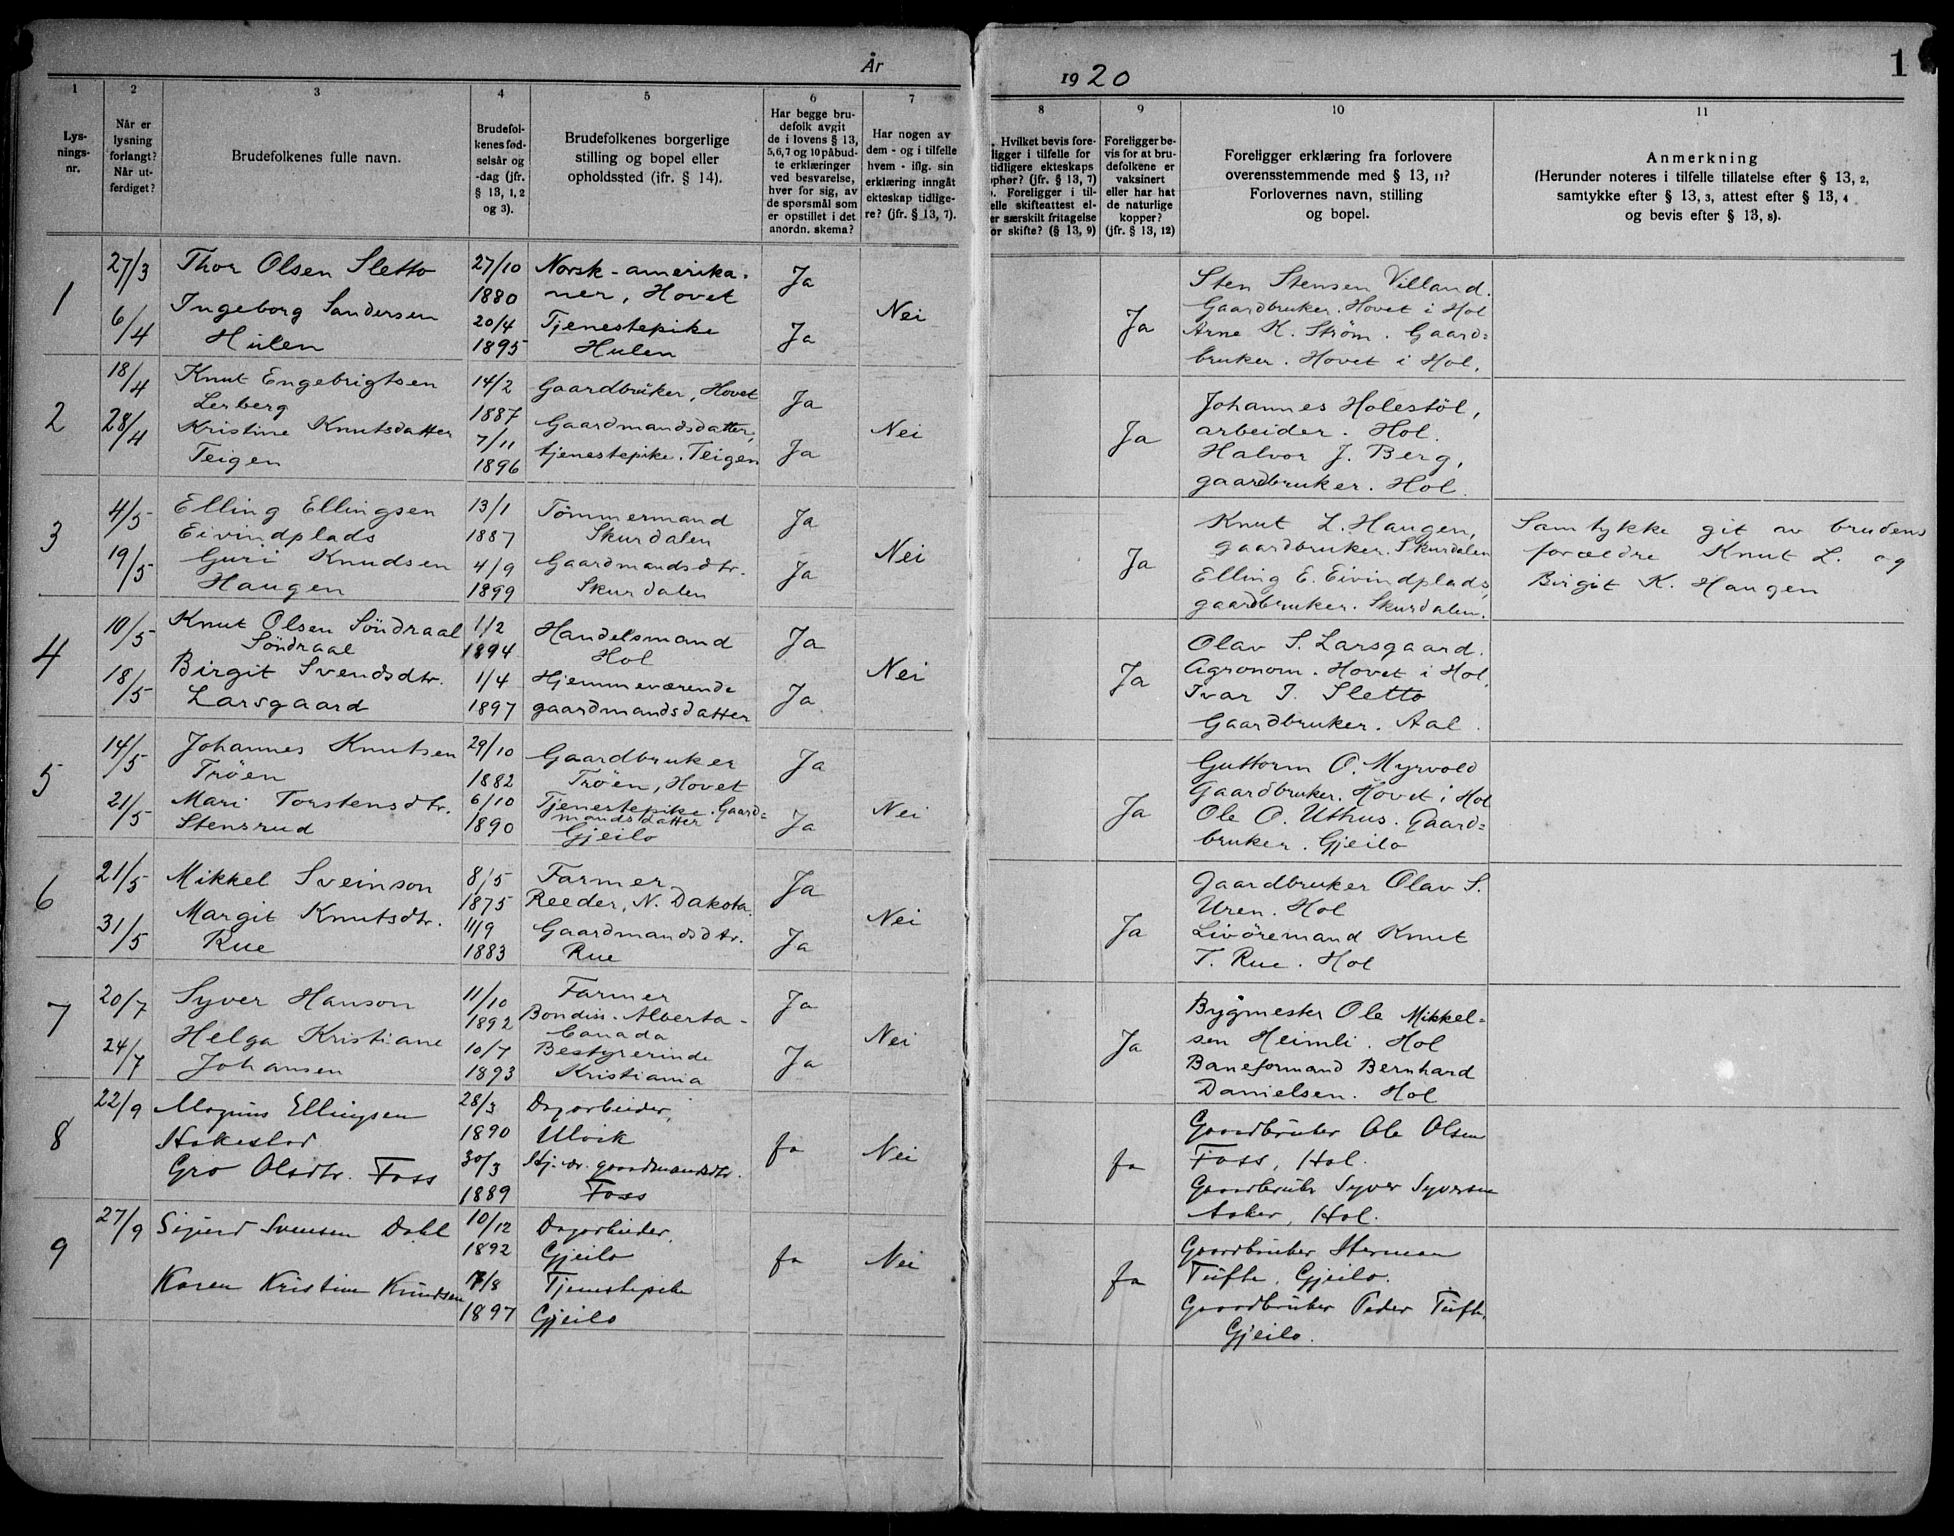 År
1920
1
1 2 3 4 5 6 7
8 9 10 11
Lys-
nings-
nr.
Når er
lysning
forlangt?
Når ut-
ferdiget?
Brudefolkenes fulle navn.
Brudefol-
kenes fød-
selsår og
-dag (jfr.
§ 13, 1, 2
og 3).
Brudefolkenes borgerlige
stilling og bopel eller
opholdssted (jfr. § 14).
Har begge bru-
defolk avgit
de i lovens § 13,
5, 6, 7 og 10 påbud-
te erklæringer
ved besvarelse,
hver for sig, av
de spørsmål som
er opstillet i det
anordn. skema?
Har nogen av
dem - og i tilfelle
hvem - iflg. sin
erklæring inngåt
ekteskap tidlige-
re? (jfr. § 13, 7).
. Hvilket bevis fore-
ligger i tilfelle for
tidligere ekteskaps
ophør? (jfr. § 13, 7)
. Foreligger i til-
elle skifteattest el-
er særskilt fritagelse
or skifte? (§ 13, 9)
Foreligger be-
vis for at bru-
defolkene er
vaksinert
eller har hat
de naturlige
kopper?
(jfr. § 13, 12)
Foreligger erklæring fra forlovere
overensstemmende med § 13, 11?
Forlovernes navn, stilling
og bopel.
Anmerkning
(Herunder noteres i tilfelle tillatelse efter § 13, 2,
samtykke efter § 13, 3, attest efter § 13, 4
og bevis efter § 13, 8).
1
27/3
6/4
Thor Olsen Sletto
Ingeborg Sandersen
Hulen
27/10
1880
20/4
1895
Norsk-amerika-
ner, Hovet
Tjenestepike
Hulen
Ja
Ja
Nei
Ja
Sten Stensen Villand.
Gaardbruker. Hovet i Hol
Arne K. Strøm. Gaard=
bruker. Hovet i Hol.
2
18/4
28/4
Knut Engebrigtsen
Lerberg
Kristine Knutsdatter
Teigen
14/2
1887
7/11
1896
Gaardbruker, Hovet
Gaardmandsdatter,
tjenestepike. Teigen
Ja
Ja
Nei
Ja
Johannes Holestöl,
arbeider. Hol.
Halvor J. Berg,
gaardbruker. Hol.
3
4/5
19/5
Elling Ellingsen
Eivindplads
Guri Knudsen
Haugen
13/1
1887
4/9
1899
Tömmermand
Skurdalen
Gaardmandsdtr.
Skurdalen
Ja
Ja
Nei
Ja
Knut L. Haugen,
gaardbruker. Skurdalen
Elling E. Eivindplads,
gaardbruker. Skurdalen.
Samtykke git av brudens
forældre Knut L. og
Birgit K. Haugen
4
10/5
18/5
Knut Olsen Söndraal
Söndraal
Birgit Svendsdtr.
Larsgaard
1/2
1894
1/4
1897
Handelsmand
Hol
Hjemmeværende
gaardmandsdatter
Ja
Ja
Nei
Ja
Olav S. Larsgaard.
Agronom. Hovet i Hol.
Ivar I. Sletto
Gaardbruker. Aal.
5
14/5
21/5
Johannes Knutsen
Tröen
Mari Torstensdtr.
Stensrud
29/10
1882
6/10
1890
Gaardbruker
Tröen, Hovet
Tjenestepike. Gaard=
mandsdatter
Gjeilo
Ja
Ja
Nei
Ja
Guttorm O. Myrvold
Gaardbruker. Hovet i Hol
Ole O. Uthus. Gaard=
bruker. Gjeilo
6
21/5
31/5
Mikkel Sveinson
Margit Knutsdtr.
Rue
8/5
1875
11/9
1883
Farmer
Reeder, N. Dakota.
Gaardmandsdtr.
Rue
Ja
Ja
Nei
Ja
Gaardbruker Olav S.
Uren. Hol
Livöremand Knut
T. Rue. Hol
7
20/7
24/7
Syver Hanson
Helga Kristiane
Johansen
11/10
1892
10/7
1893
Farmer
Bondiss. Alberta -
Canada
Bestyrerinde
Kristiania
Ja
Ja
Nei
Ja
Bygmester Ole Mikkel=
sen Heimli. Hol
Baneformand Bernhard
Danielsen. Hol
8
22/9
Magnus Ellingsen
Hakestad.
Gro Olsdtr. Foss
28/3
1890
30/3
1889
Dagarbeider,
Ulvik
Hj. vr. gaardmandsdtr.
Foss
Ja
Nei
Ja
Gaardbruker Ole Olsen
Foss, Hol.
Gaardbruker Syver Syversen
Aaker, Hol.
9
27/9
Sigurd Svensen Dahl
Karen Kristine Knudsen
10/12
1892
7/8
1897
Dagarbeider,
Gjeilo
Tjenestepike
Gjeilo
Ja
Nei
Ja
Gaardbruker Herman
Tufte, Gjeilo.
Gaardbruker Peder Tufte,
Gjeilo.